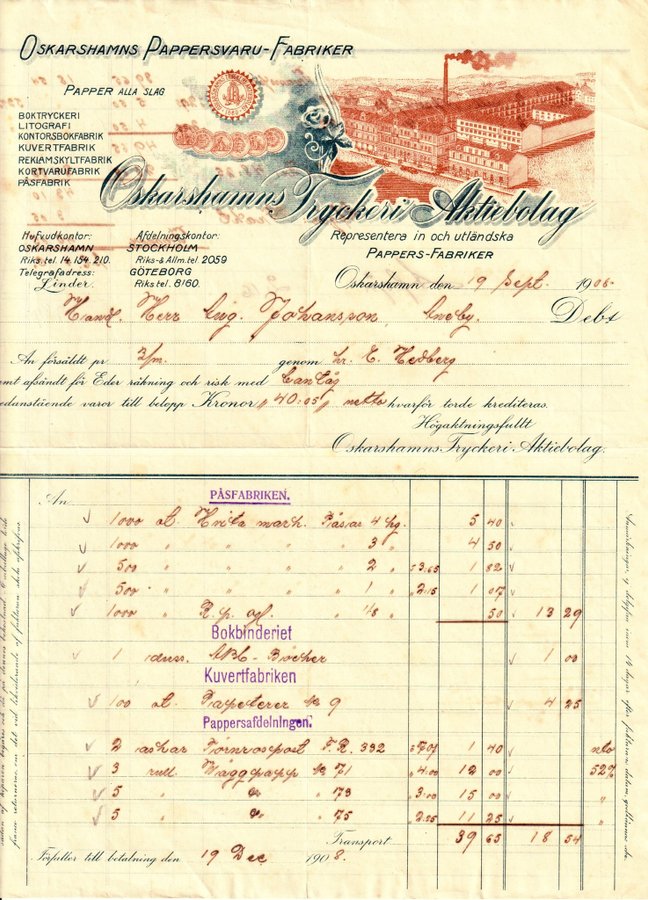 OSKARSHAMNS PAPPERSVARU-FABRIKER
PAPPER ALLA SLAG
BOKTRYCKERI
LITOGRAFI
KONTORSBOKFABRIK
KUVERTFABRIK
REKLAMSKYLTFABRIK
KORTVARUFABRIK
PÅSFABRIK
Oskarshamns Tryckeri Aktiebolag
Hufvudkontor: Afdelningskontor:
OSKARSHAMN STOCKHOLM
Riks tel. 14. 154. 210. Riks- & Allm. tel. 2059
Telegrafadress: GÖTEBORG
Linder. Riks tel. 8160.
Representera in och utländska
PAPPERS-FABRIKER
Oskarshamn den 19 Sept. 1908.
Handl. Herr Aug. Johansson, Aneby. Debet
An försåldt pr 3/m. genom hr. E. Hedberg
samt afsändt för Eder räkning och risk med
nedanstående varor till belopp Kronor " 40.05 " netto hvarför torde krediteras.
Högaktningsfullt
Oskarshamns Tryckeri Aktiebolag.
An
PÅSFABRIKEN.
1000 st. Hvita mark. Påsar 4 hg. 5 40
1000 " " " " 3 " 4 50
500 " " " " 2 " " 3.65 1 82
500 " " " " 1 " " 2.15 1 07
1000 " " 1/8 " 50 13 29
Bokbinderiet
1 duss. ABC-Böcker 1 00
Kuvertfabriken
100 st. Papeterer № 9 4 25
Pappersafdelningen.
2 askar Törnrospost F.R. 332 1 40 nto
3 rull Väggpapp № 71 " 4.00 12 00 52%
5 " " 73 " 3.00 15 00 "
5 " " 75 " 2.25 11 25 "
Transport 39 65 18 54
Förfaller till betalning den 19 Dec 1908.